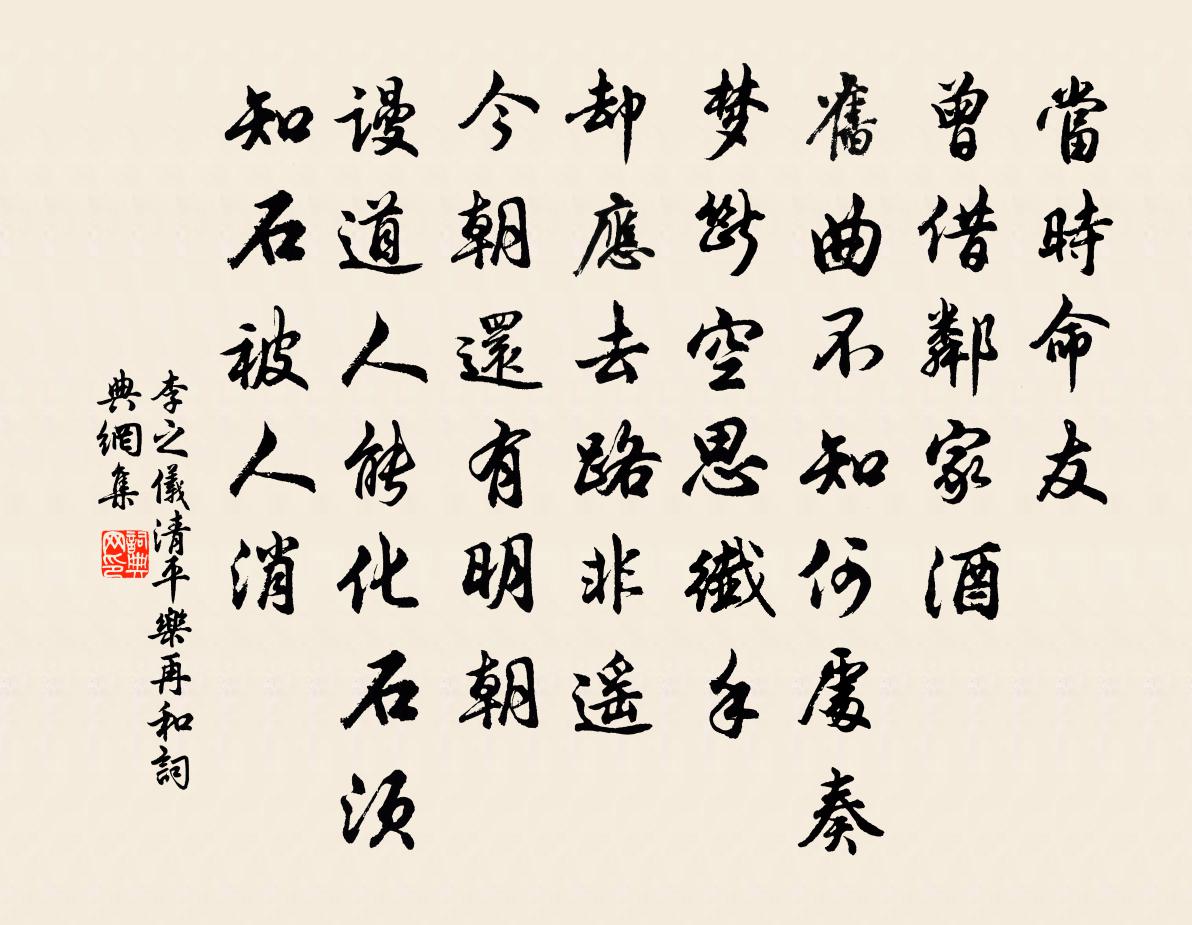 當時命友
曾借鄰家酒
舊曲不知何處奏
梦斷空思纖手
却應去路非遥
今朝還有明朝
謾道人能化石須
知石被人消
李之儀清平樂再和詞
典網集
詞典
网印